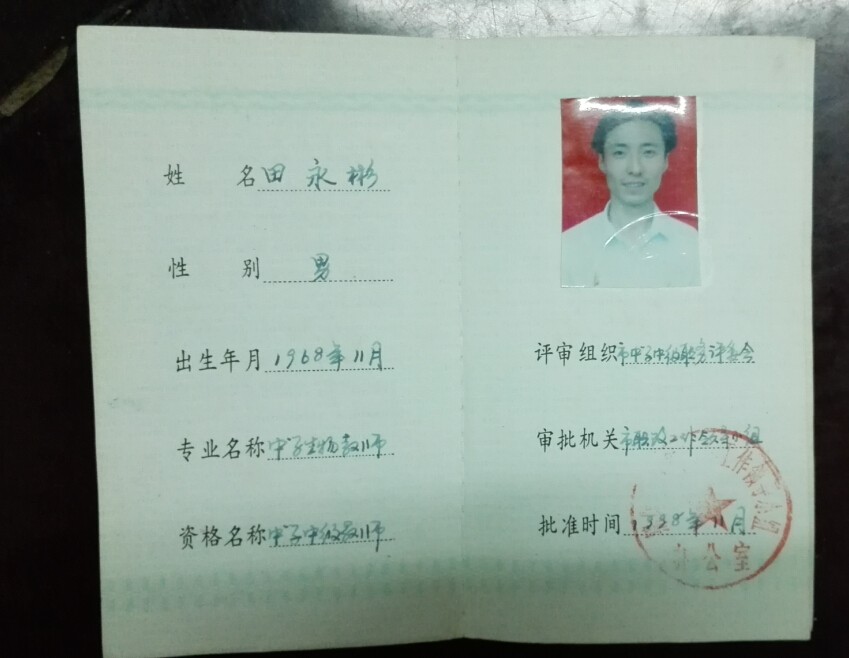 姓 名 田永彬
性 别 男
出生年月 1968年11月
专业名称 中学生物教师
资格名称 中学中级教师
评审组织 市中学中级职务评委会
审批机关 市职改工作领导小组
批准时间 1998年11月
工作领导小组
办公室